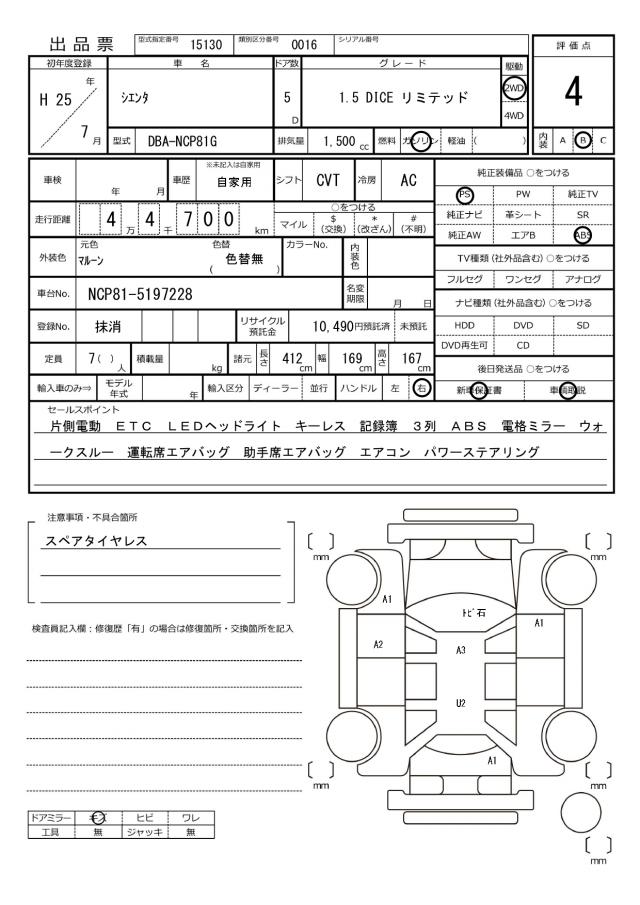 出品票
型式指定番号 15130 類別区分番号 0016 シリアル番号
評価点
4
初年度登録 車名 ドア数 グレード 駆動
H 25 年 7 月
シエンタ 5 D 1.5 DICE リミテッド 2WD 4WD
型式 DBA-NCP81G 排気量 1,500 cc 燃料 ガソリン 軽油 ( )
内装 A B C
車検 年 月 車歴 ※未記入は自家用 自家用 シフト CVT 冷房 AC
純正装備品 ○をつける
PS PW 純正TV
純正ナビ 革シート SR
純正AW エアB ABS
走行距離 4 万 4 千 7 0 0 km
○をつける
マイル $ (交換) * (改ざん) # (不明)
外装色 元色 マルーン 色替 ( 色替無 ) カラーNo. 内装色
TV種類 (社外品含む) ○をつける
フルセグ ワンセグ アナログ
車台No. NCP81-5197228 名変期限 月 日
ナビ種類 (社外品含む) ○をつける
HDD DVD SD
DVD再生可 CD
登録No. 抹消 リサイクル預託金 10,490円預託済 未預託
定員 7 ( ) 人 積載量 kg 諸元 長さ 412 cm 幅 169 cm 高さ 167 cm
後日発送品 ○をつける
新車保証書 車輌取説
輸入車のみ⇒ モデル年式 年 輸入区分 ディーラー 並行 ハンドル 左 右
セールスポイント
片側電動 ETC LEDヘッドライト キーレス 記録簿 3列 ABS 電格ミラー ウォ
ークスルー 運転席エアバッグ 助手席エアバッグ エアコン パワーステアリング
注意事項・不具合箇所
スペアタイヤレス
検査員記入欄：修復歴「有」の場合は修復箇所・交換箇所を記入
mm
mm
A1
トビ石
A1
A2
A3
U2
A1
mm
mm
mm
ドアミラー キズ ヒビ ワレ
工具 無 ジャッキ 無